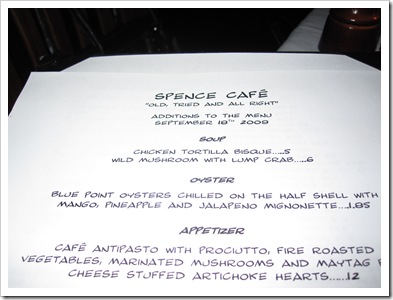 SPENCE CAFÉ
"OLD, TRIED AND ALL RIGHT"
ADDITIONS TO THE MENU
SEPTEMBER 18TH 2009
SOUP
CHICKEN TORTILLA BISQUE.....5
WILD MUSHROOM WITH LUMP CRAB....6
OYSTER
BLUE POINT OYSTERS CHILLED ON THE HALF SHELL WITH
MANGO, PINEAPPLE AND JALAPENO MIGNONETTE....1.85
APPETIZER
CAFÉ ANTIPASTO WITH PROCIUTTO, FIRE ROASTED
VEGETABLES, MARINATED MUSHROOMS AND MAYTAG
CHEESE STUFFED ARTICHOKE HEARTS......12